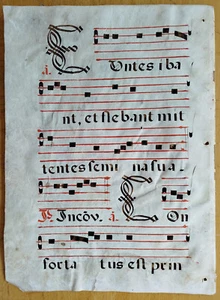 a. E Untes iba
nt, et flebant mit
tentes semi na sua
In cōv. a. C On
forta tus est prin